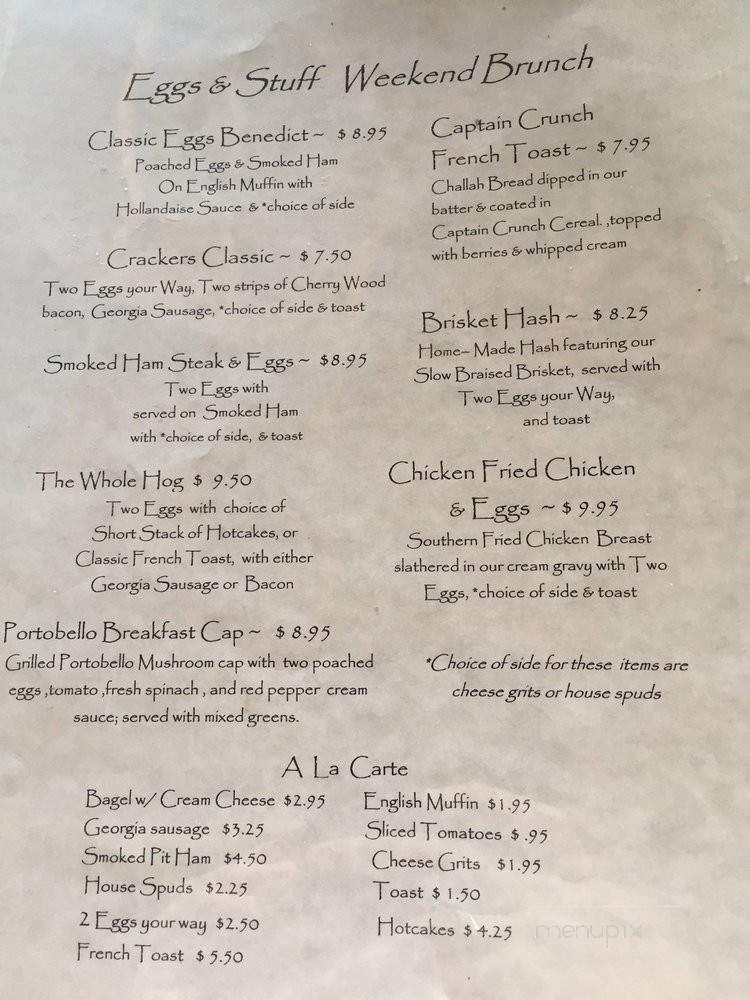 Eggs & Stuff Weekend Brunch
Classic Eggs Benedict ~ $ 8.95
Poached Eggs & Smoked Ham
On English Muffin with
Hollandaise Sauce & *choice of side
Crackers Classic ~ $ 7.50
Two Eggs your Way, Two strips of Cherry Wood
bacon, Georgia Sausage, *choice of side & toast
Smoked Ham Steak & Eggs ~ $8.95
Two Eggs with
served on Smoked Ham
with *choice of side, & toast
The Whole Hog $ 9.50
Two Eggs with choice of
Short Stack of Hotcakes, or
Classic French Toast, with either
Georgia Sausage or Bacon
Portobello Breakfast Cap ~ $ 8.95
Grilled Portobello Mushroom cap with two poached
eggs ,tomato ,fresh spinach , and red pepper cream
sauce; served with mixed greens.
Captain Crunch
French Toast ~ $ 7.95
Challah Bread dipped in our
batter & coated in
Captain Crunch Cereal. ,topped
with berries & whipped cream
Brisket Hash ~ $ 8.25
Home- Made Hash featuring our
Slow Braised Brisket, served with
Two Eggs your Way,
and toast
Chicken Fried Chicken
& Eggs ~ $ 9.95
Southern Fried Chicken Breast
slathered in our cream gravy with Two
Eggs, *choice of side & toast
*Choice of side for these items are
cheese grits or house spuds
A La Carte
Bagel w/ Cream Cheese $2.95
Georgia sausage $3.25
Smoked Pit Ham $4.50
House Spuds $2.25
2 Eggs your way $2.50
French Toast $ 5.50
English Muffin $1.95
Sliced Tomatoes $ .95
Cheese Grits $1.95
Toast $ 1.50
Hotcakes $ 4.25
menupix